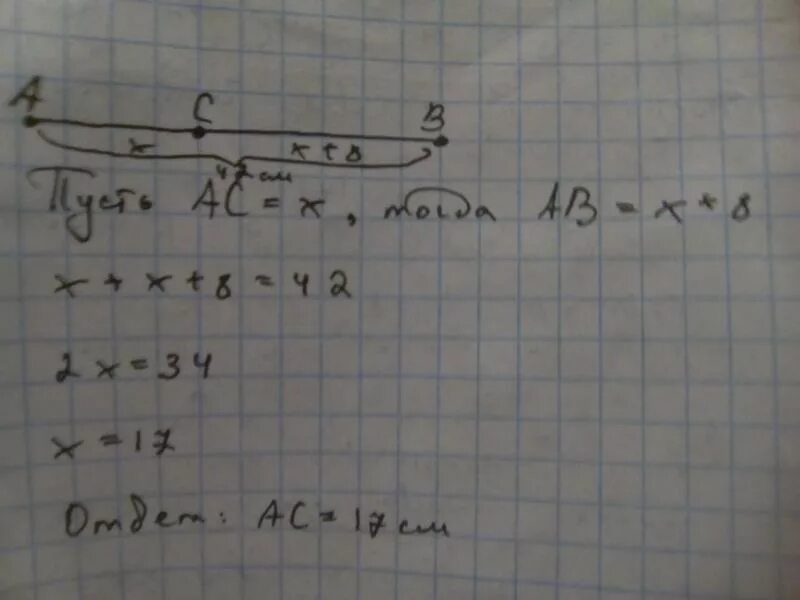 A C B
x x + 8
42 см
Пусть AC = x, тогда AB = x + 8
x + x + 8 = 42
2x = 34
x = 17
Ответ: AC = 17 см